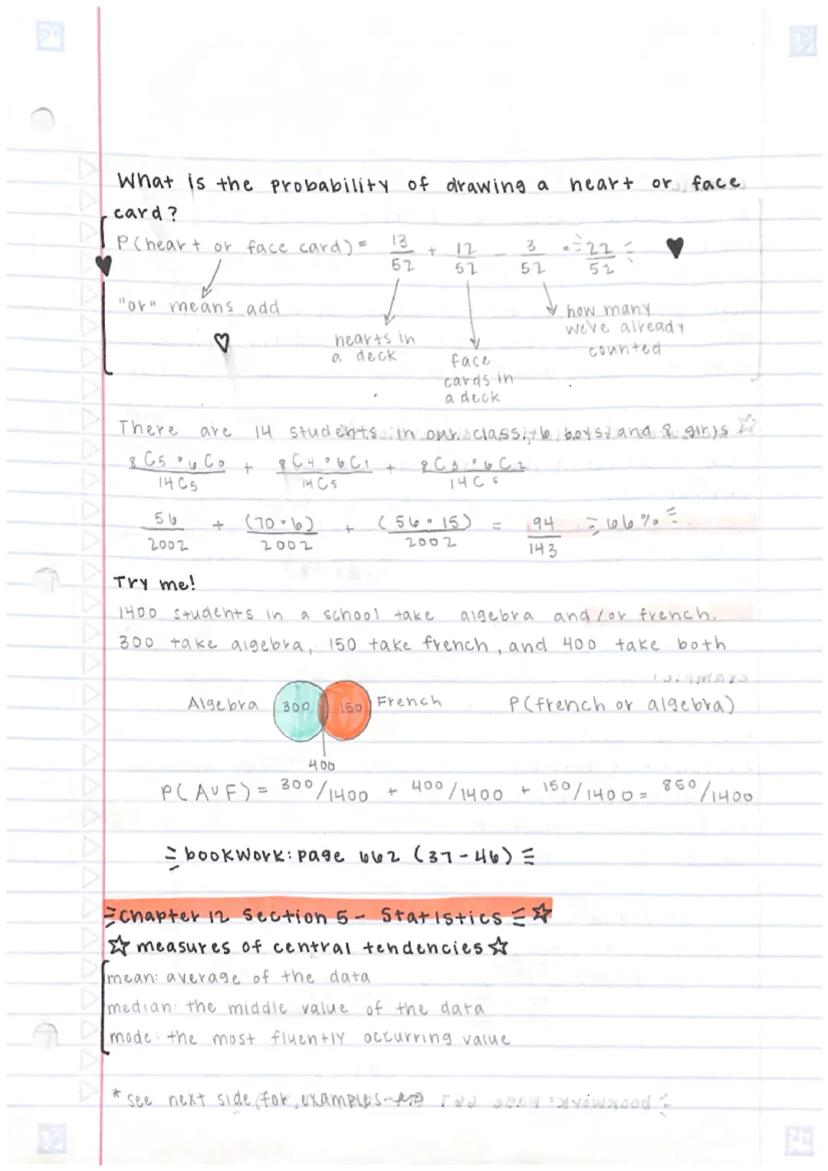 What is the probability of drawing a heart or face
card?
P(heart or face card) = 13/52 + 12/52 - 3/52 = 22/52
"or" means add
hearts in
a deck
face
cards in
a deck
how many
we've already
counted
There are 14 students in our class; 6 boys and 8 girls
8C5 • 6C0 / 14C5 + 8C4 • 6C1 / 14C5 + 8C3 • 6C2 / 14C5
56/2002 + (70•6)/2002 + (56•15)/2002 = 94/143 = 66%
Try me!
1400 students in a school take algebra and/or french.
300 take algebra, 150 take french, and 400 take both
Algebra 300 150 French P(french or algebra)
400
P(A∪F) = 300/1400 + 400/1400 + 150/1400 = 850/1400
bookwork: page 662 (37-46)
Chapter 12 Section 5 - Statistics
measures of central tendencies
mean: average of the data
median: the middle value of the data
mode: the most fluently occurring value
* see next side for examples